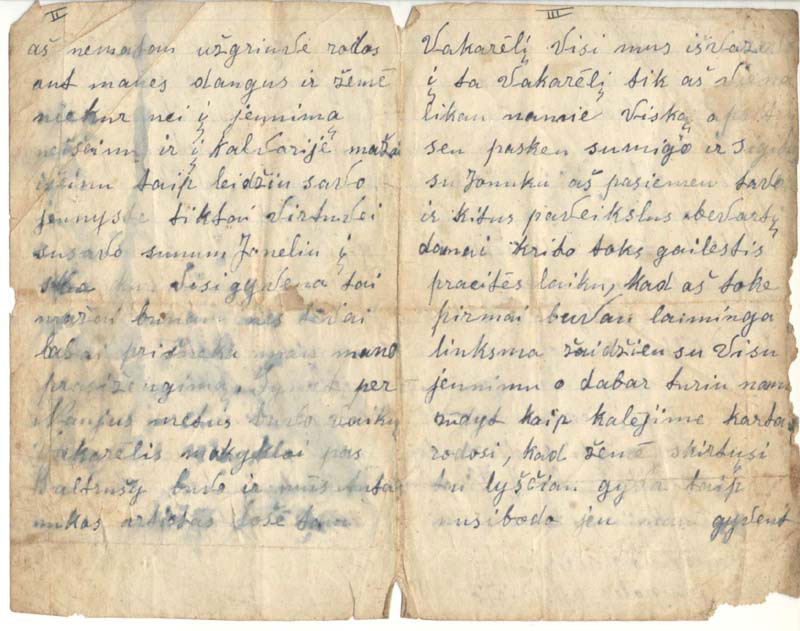 II
aš nematau užgriuvė rodos
ant manes dangus ir žemė
niekur nei į jennimą
neišeinu ir į kalvariję maža
išeinu taip leidžiu savo
jennystę tiktai virtuvei
susavo sunum Janeliu į
visi gyvena tai
mažai bunam nes tėvai
labai prišneka man mano
prasižengimą per
Naujus metus buvo vaikų
vakarėlis mokyklai pas
Baltrušy buvo ir mūs Anta
nukas artistas lošė tam
III
Vakarėlį visi mus išvaz
į ta vakarėlį tik aš viena
likau namie viską
sen pasken sumigo ir
su Jonuku aš pasiemen tavo
ir kitus paveikslus bevarty
damai krito toks gailestis
praeitės laiku, kad aš toke
pirmai buvau laiminga
linksma žaidžieu su visu
jennimu o dabar turiu nam
rūdyt kaip kalėjime karta
rodosi, kad žemė skirtųsi
tai lyščiau gyva taip
nusibodo jeu man gyvent